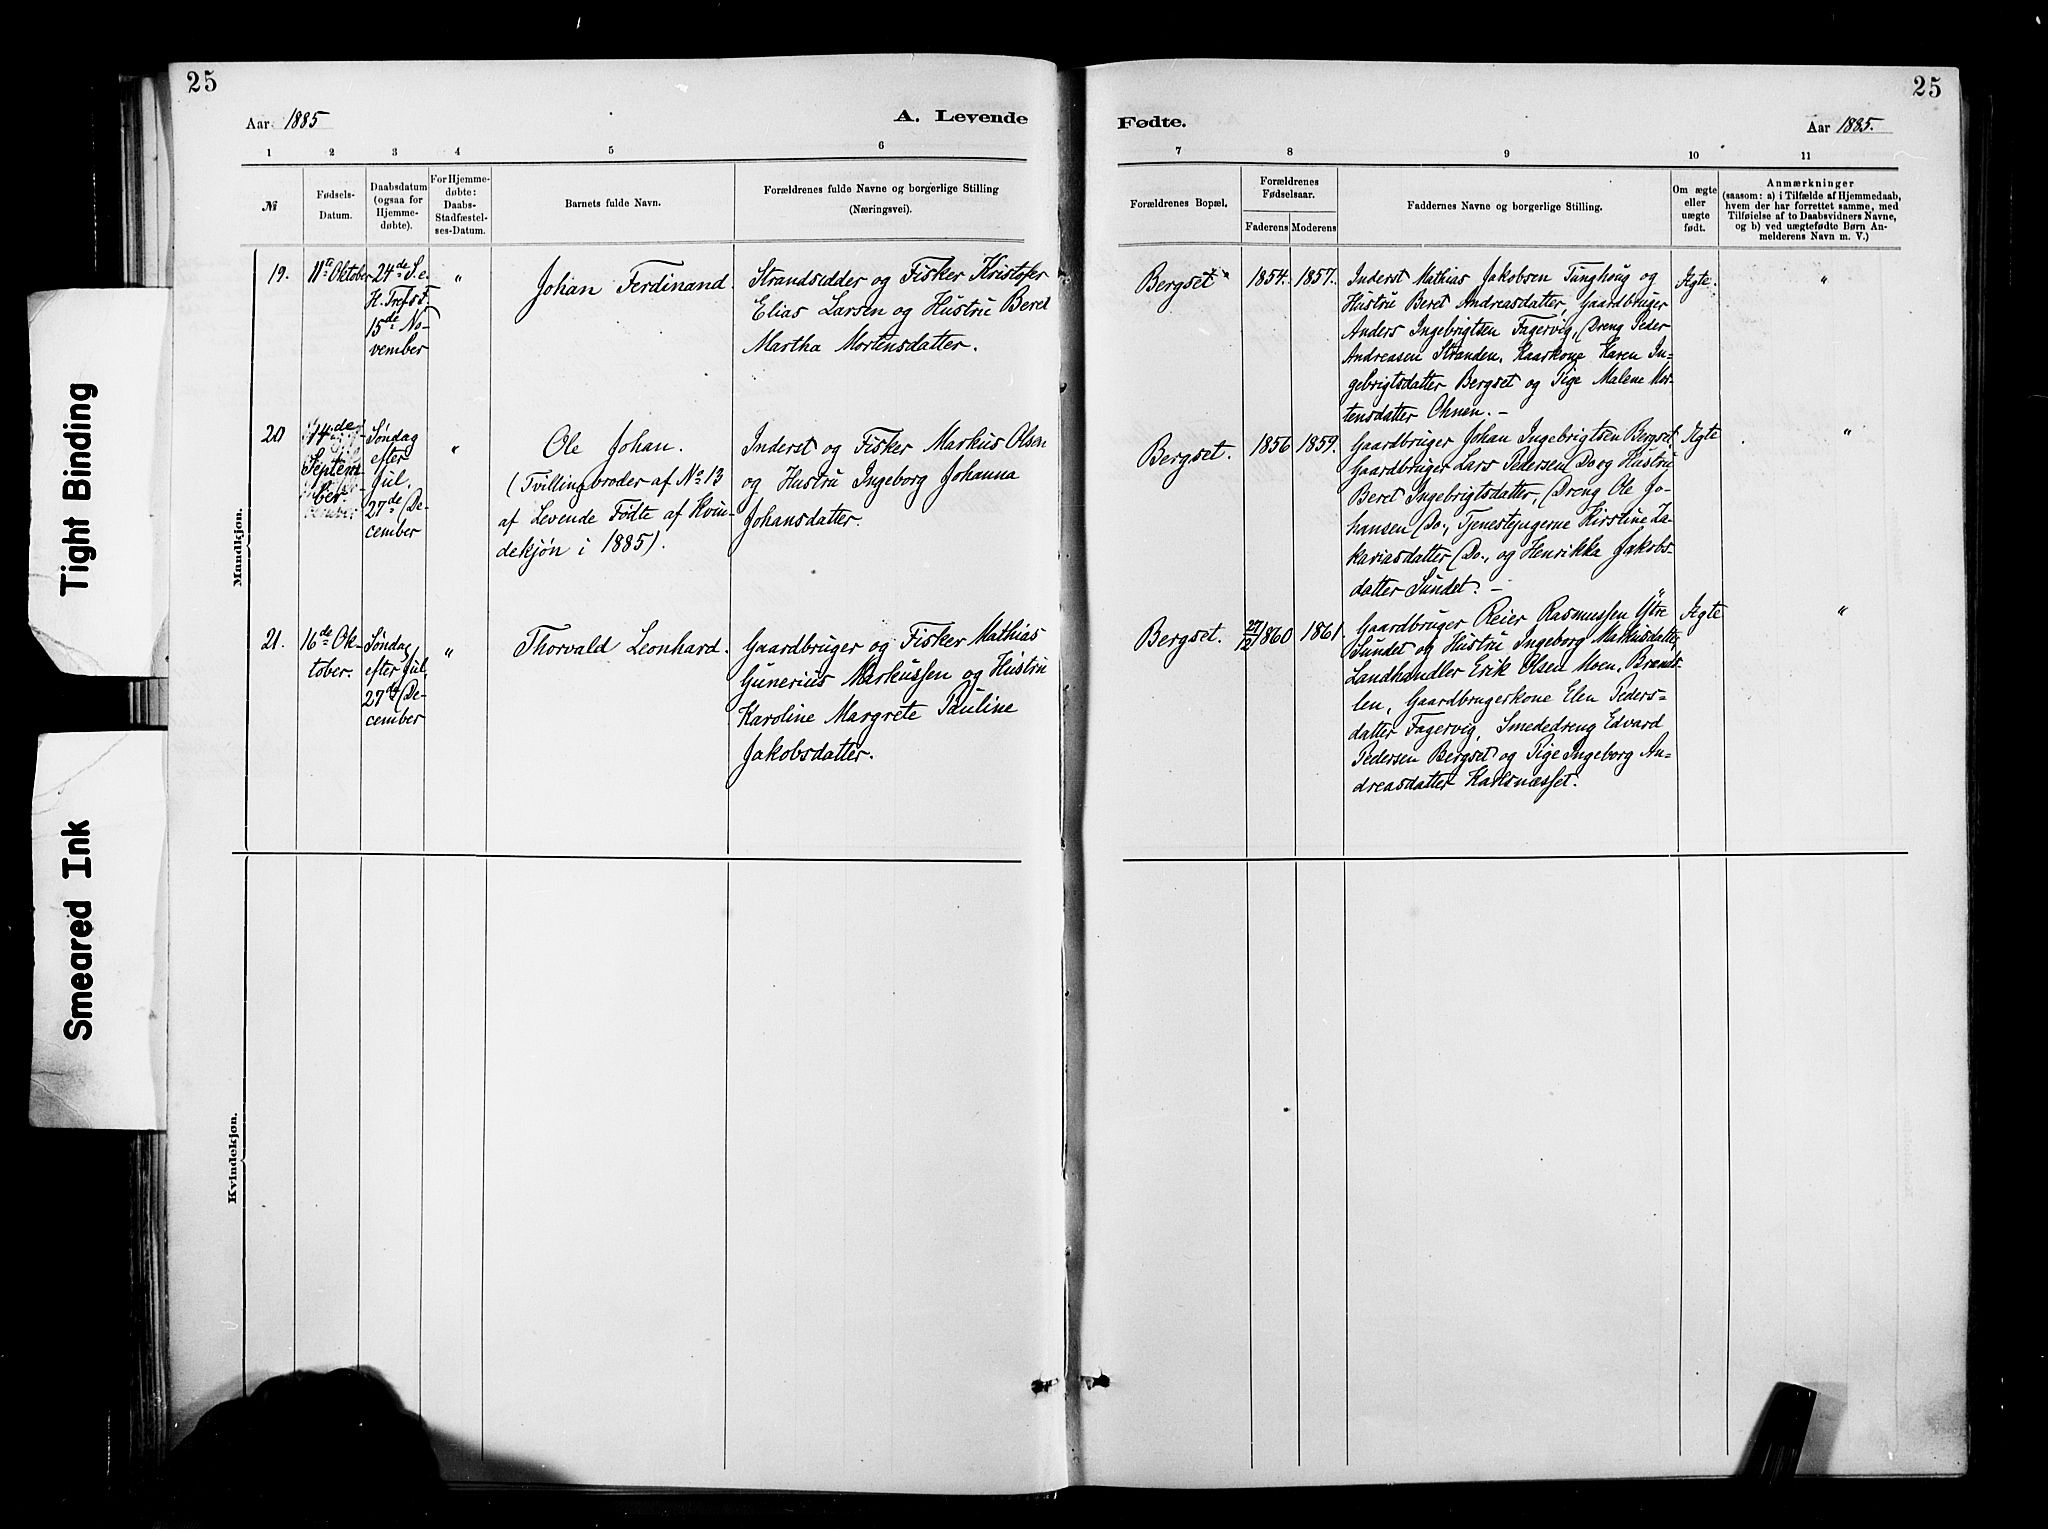 Tight Binding
Smeared Ink
25
25
Aar 1885
A. Levende
Fødte.
Aar 1885.
1 2 3 4 5 6
7 8 9 10 11
№
Fødsels-
Datum.
Daabsdatum
(ogsaa for
Hjemme-
døbte).
For Hjemme-
døbte:
Daabs-
Stadfæstel-
ses-Datum.
Barnets fulde Navn.
Forældrenes fulde Navne og borgerlige Stilling
(Næringsvei).
Forældrenes Bopæl.
Forældrenes
Fødselsaar.
Faderens Moderens
Faddernes Navne og borgerlige Stilling.
Om ægte
eller
uægte
født.
Anmærkninger
(saasom: a) i Tilfælde af Hjemmedaab,
hvem der har forrettet samme, med
Tilføielse af to Daabsvidners Navne,
og b) ved uægtefødte Børn An-
melderens Navn m. V.)
Mandkjøn.
19.
11te Oktober
24de S. e.
H. Trefst.
15de No-
vember
"
Johan Ferdinand.
Strandsidder og Fisker Kristofer
Elias Larsen og Hustru Beret
Martha Mortensdatter.
Bergset
1854. 1857.
Inderst Mathias Jakobsen Tunghoug og
Hustru Beret Andreasdatter, Gaardbruger
Anders Ingebrigtsen Fagervig, Dreng Peder
Andreasen Stranden, Kaarkone Karen In-
gebrigtsdatter Bergset og Pige Malene Mor-
tensdatter Ohnen. –
Ægte.
"
20
14de
Septem
ber.
Søndag
efter
Jul.
27de De-
cember
"
Ole Johan.
(Tvillingbroder af No 13
af Levende Fødte af Kvin-
dekjøn i 1885).
Inderst og Fisker Markus Olsen
og Hustru Ingeborg Johanna
Johansdatter.
Bergset.
1856 1859.
Gaardbruger Johan Ingebrigtsen Bergset,
Gaardbruger Lars Pedersen Do og Hustru
Beret Ingebrigtsdatter, Dreng Ole Jo-
hansen Do., Tjenestepigerne Kirstine Za-
kariasdatter Do., og Henrikka Jakobs-
datter Sundet. –
Ægte
"
21.
16de Ok-
tober.
Søndag
efter Jul,
27de De-
cember
"
Thorvald Leonhard.
Gaardbruger og Fisker Mathias
Gunerius Markussen og Hustru
Karoline Margrete Pauline
Jakobsdatter.
Bergset.
27/12 1860 1861
Gaardbruger Reier Rasmussen Ytre
Sundet og Hustru Ingeborg Mathisdatter,
Landhandler Erik Olsen Moen,
len, Gaardbrugerkone Elen Peders-
datter Fagervig, Smededreng Edvard
Pedersen Bergset og Pige Ingeborg An-
dreasdatter Karlsnæsset.
Ægte
"
Kvindekjøn.